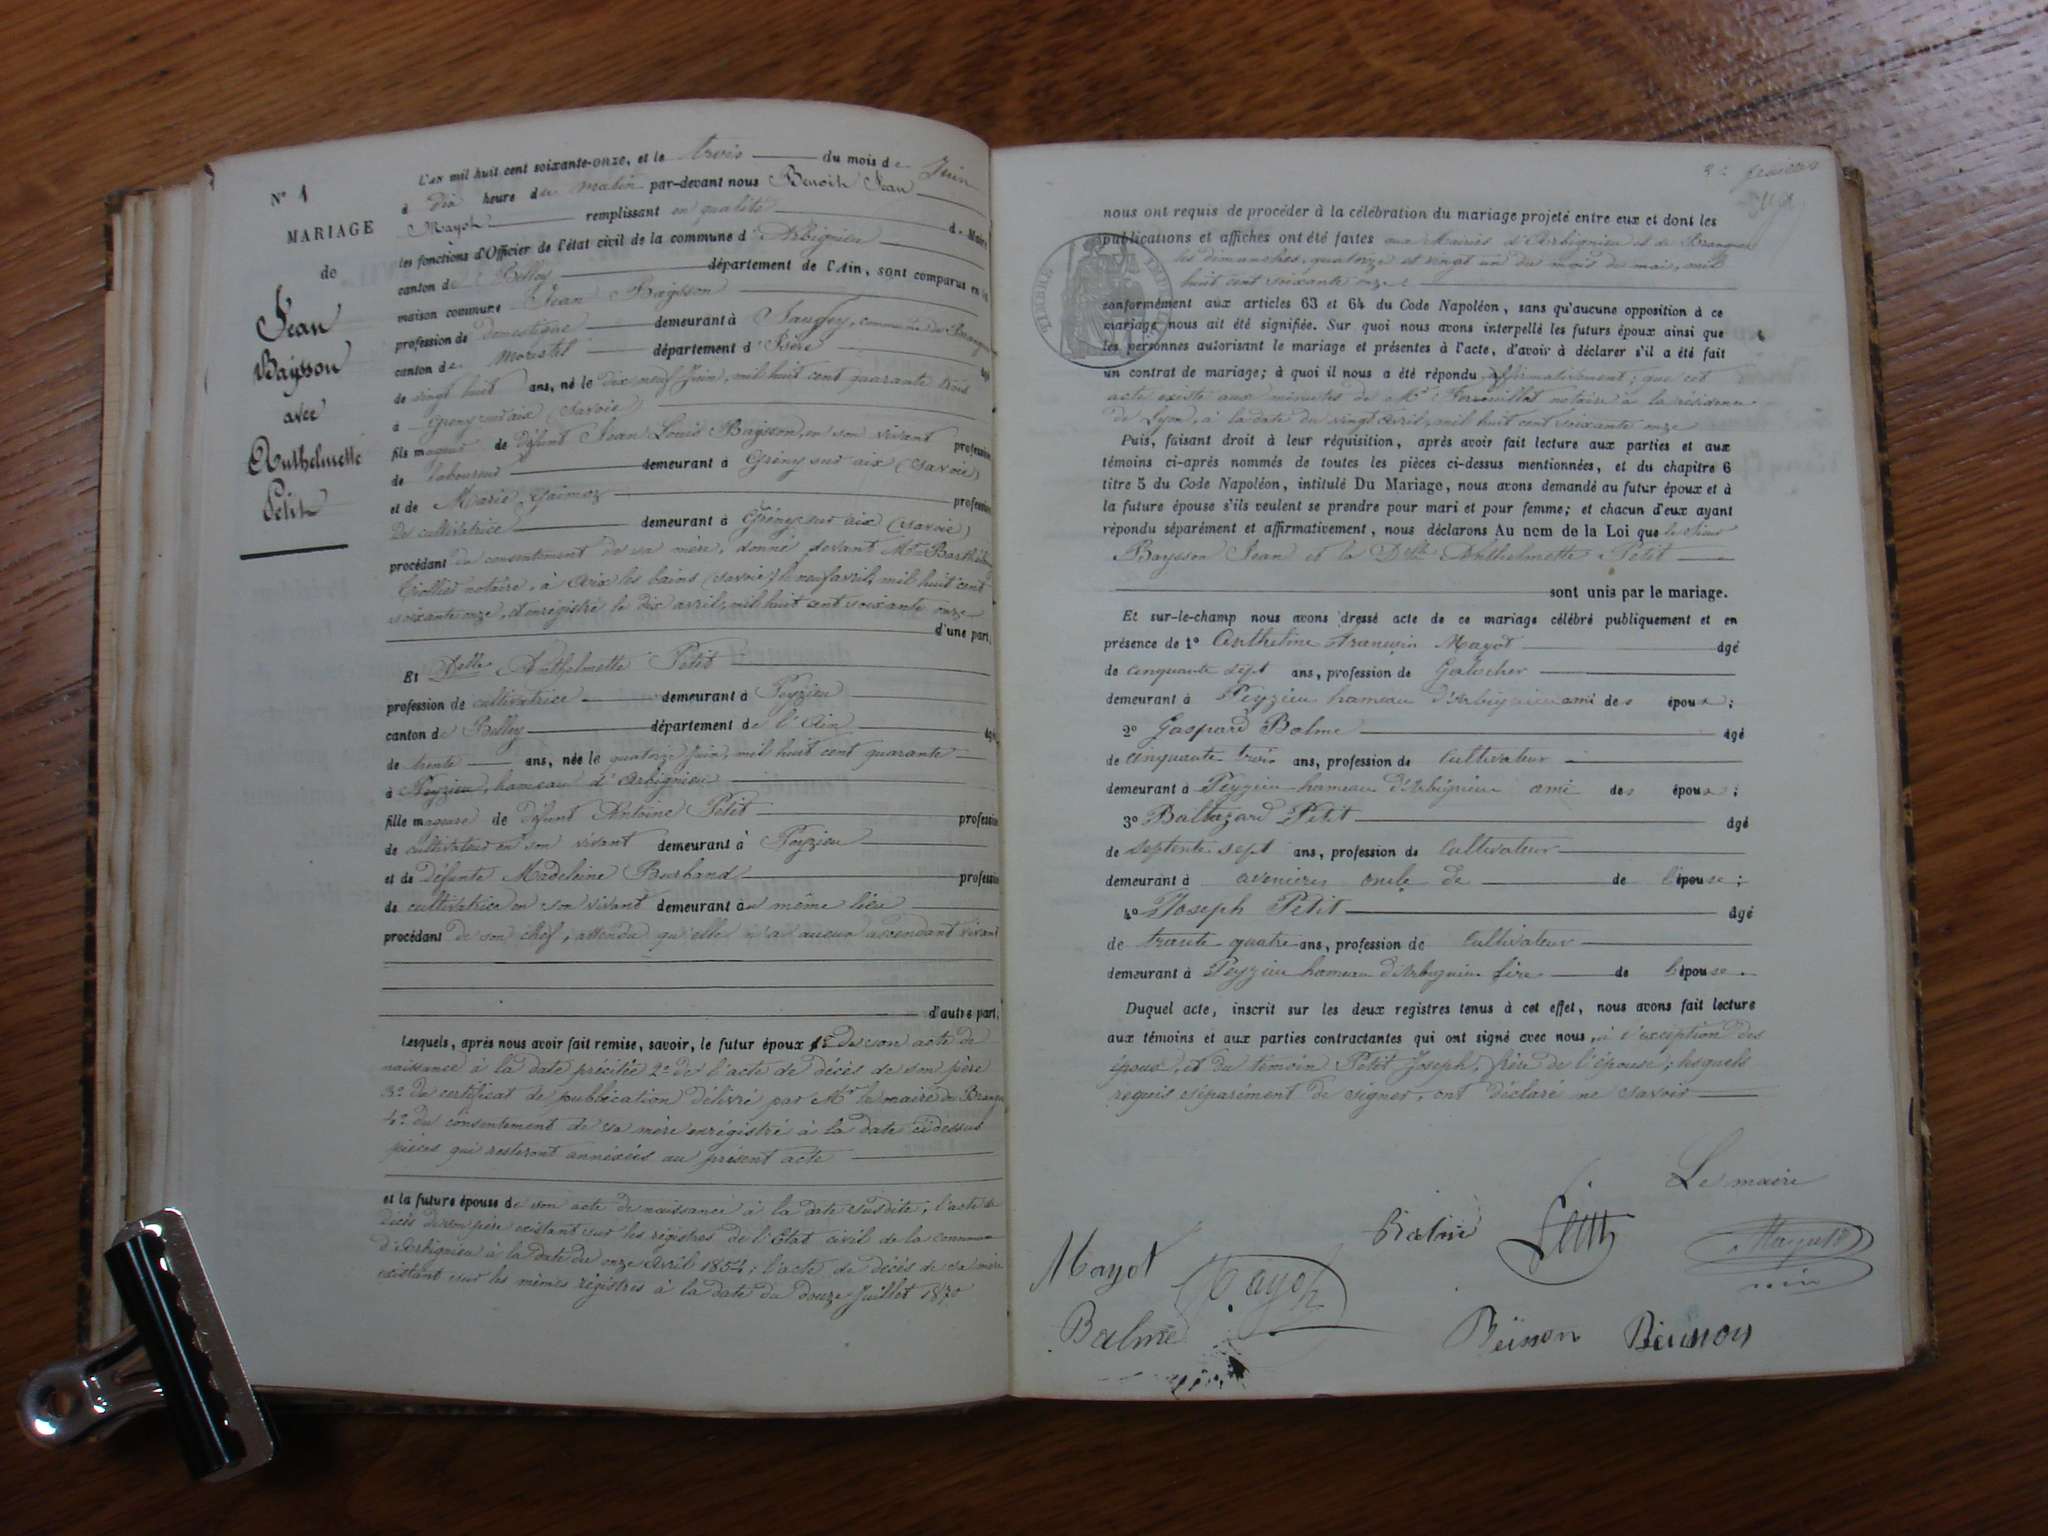 N° 1
MARIAGE
de
Jean
Baysson
avec
Anthelmette
Petit
L'an mil huit cent soixante-onze, et le trois du mois de Juin
à dix heure du matin par-devant nous Benoit Jean
Mayot remplissant en qualité de Maire
les fonctions d'Officier de l'état civil de la commune d'Arbignieu
canton de Belley département de l'Ain, sont comparus en la
maison commune Jean Baysson
profession de domestique demeurant à Saugey, commune de Brangues
canton de Morestel département d'Isère âgé
de vingt huit ans, né le dix neuf Juin, mil huit cent quarante trois
à Grésy sur aix (Savoie)
fils majeur de défunt Jean Louis Baysson, en son vivant profession
de laboureur demeurant à Grésy sur aix (Savoie)
et de Marie profession
De cultivatrice demeurant à Grésy sur aix (Savoie)
procédant du consentement de sa mère, donné devant Mtre
notaire, à Aix les bains (Savoie) le neuf avril, mil huit cent
soixante onze, enregistré le dix avril, mil huit cent soixante onze
d'une part,
Et Delle Anthelmette Petit
profession de cultivatrice demeurant à Peyzieu
canton de Belley département de l'Ain âgée
de trente ans, née le quatorze Juin, mil huit cent quarante
à Peyzieu, hameau d'Arbignieu
fille majeure de défunt Antoine Petit profession
de cultivateur en son vivant demeurant à Peyzieu
et de défunte Madeleine profession
de cultivatrice en son vivant demeurant au même lieu
procédant de son chef, attendu qu'elle n'a aucun ascendant vivant
d'autre part,
Lesquels, après nous avoir fait remise, savoir, le futur époux 1° De son acte de
naissance à la date précitée 2° de l'acte de décès de son père
3° Du certificat de publication délivré par Mr le maire de Brangues
4° du consentement de sa mère enrégistré à la date cidessus
pièces qui resteront annéxées au présent acte
et la future épouse de son acte de naissance à la date susdite, l'acte de
décès de son père existant sur les régistres de l'Etat civil de la commune
d'Arbignieu à la date du onze Avril 1854; l'acte de décès de sa mère
existant sur les mêmes régistres à la date du douze Juillet 1870
nous ont requis de procéder à la célébration du mariage projeté entre eux et dont les
publications et affiches ont été faites aux Mairies d'Arbignieu et de Brangues
les dimanches, quatorze et vingt un du mois de mai, mil
huit cent soixante onze
conformément aux articles 63 et 64 du Code Napoléon, sans qu'aucune opposition à ce
mariage nous ait été signifiée. Sur quoi nous avons interpellé les futurs époux ainsi que
les personnes autorisant le mariage et présentes à l'acte, d'avoir à déclarer s'il a été fait
un contrat de mariage; à quoi il nous a été répondu affirmativement; que cet
acte existe aux minutes de Mr notaire à la résidence
de Lyon, à la date du vingt Avril, mil huit cent soixante onze
Puis, faisant droit à leur réquisition, après avoir fait lecture aux parties et aux
témoins ci-après nommés de toutes les pièces ci-dessus mentionnées, et du chapitre 6
titre 5 du Code Napoléon, intitulé Du Mariage, nous avons demandé au futur époux et à
la future épouse s'ils veulent se prendre pour mari et pour femme; et chacun d'eux ayant
répondu séparément et affirmativement, nous déclarons Au nom de la Loi que le Sieur
Baysson Jean et la Dlle Anthelmette Petit
sont unis par le mariage.
Et sur-le-champ nous avons dressé acte de ce mariage célébré publiquement et en
présence de 1° Anthelme François Mayot âgé
de cinquante sept ans, profession de Galocher
demeurant à Peyzieu hameau d'Arbignieu ami des époux;
2° Gaspard Balme âgé
de cinquante trois ans, profession de Cultivateur
demeurant à Peyzieu hameau d'Arbignieu ami des époux;
3° Baltazard Petit âgé
de septente sept ans, profession de Cultivateur
demeurant à avenieres oncle de de l'épouse;
4° Joseph Petit âgé
de trante quatre ans, profession de Cultivateur
demeurant à Peyzieu hameau d'Arbignieu frère de l'épouse.
Duquel acte, inscrit sur les deux registres tenus à cet effet, nous avons fait lecture
aux témoins et aux parties contractantes qui ont signé avec nous, à l'exception des
époux, et du témoin Petit Joseph, frère de l'épouse; lesquels
requis séparément de signer, ont déclaré ne savoir
Le maire
Balme Petit
Mayot Mayot
Balme